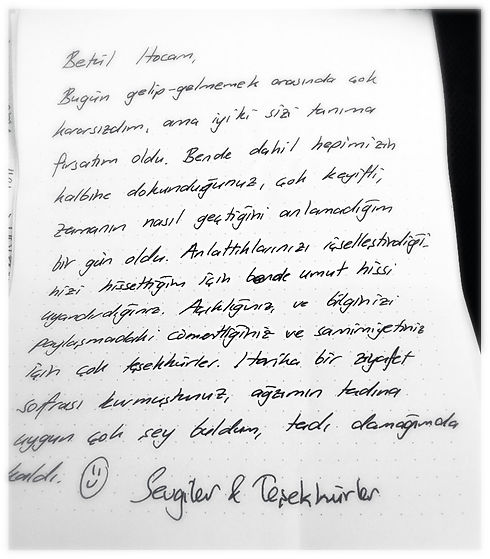 Betül Hocam,
Bugün gelip-gelmemek arasında çok
kararsızdım, ama iyiki sizi tanıma
fırsatım oldu. Bende dahil hepimizin
kalbine dokunduğunuz, çok keyifli,
zamanın nasıl geçtiğini anlamadığım
bir gün oldu. Anlattıklarınızı içselleştirdiği-
nizi hissettiğim için bende umut hissi
uyandırdığınız. Açıklığınız, ve bilginizi
paylaşmadaki cömertliğiniz ve samimiyetiniz
için çok teşekkürler. Harika bir ziyafet
sofrası kurmuştunuz, ağzımın tadına
uygun çok şey buldum, tadı damağımda
kaldı.
Sevgiler & Teşekkürler